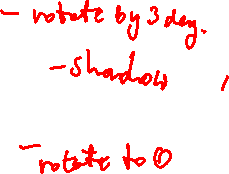 - rotate by 3 deg.
- shadow
- rotate to 0